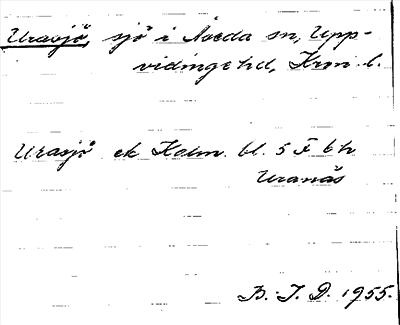 Urasjö, sjö i Åseda sn, Upp-
vidinge hd, Kron. l.
Urasjö ek Kalm. bl. 5 F b h
Uranäs
B. I. D. 1955.